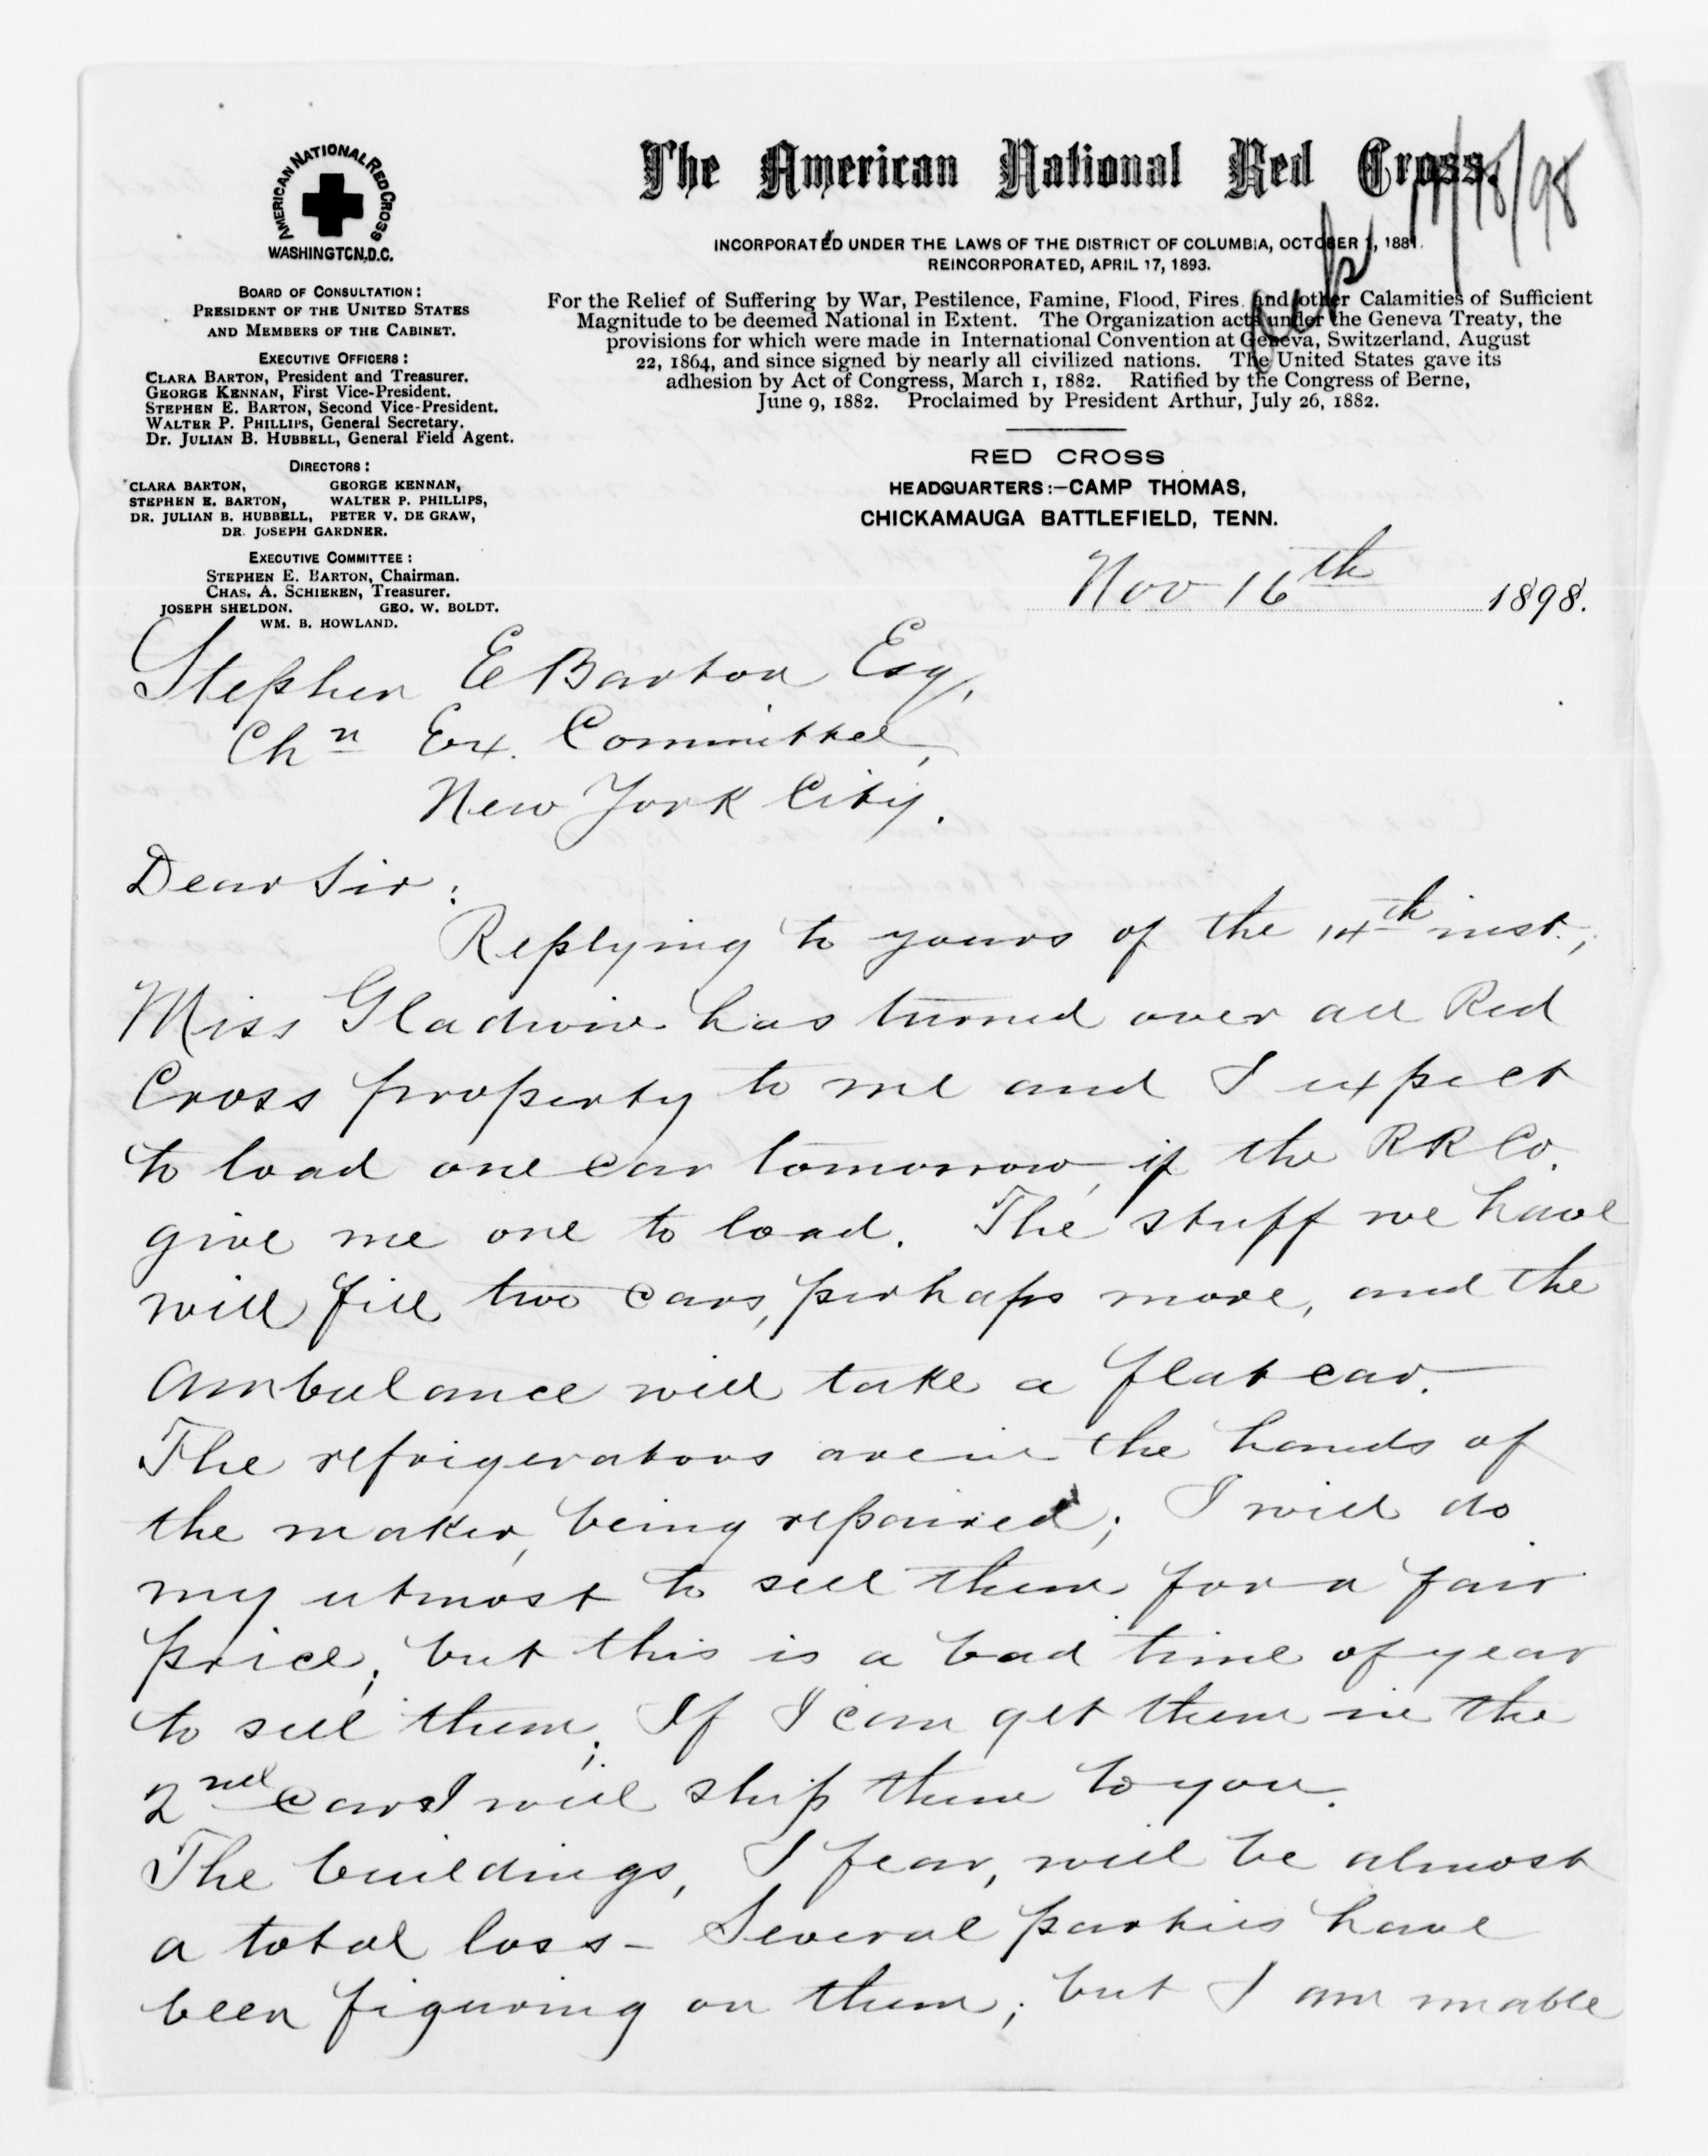 AMERICAN NATIONAL RED CROSS
WASHINGTON, D.C.
BOARD OF CONSULTATION:
PRESIDENT OF THE UNITED STATES
AND MEMBERS OF THE CABINET.
EXECUTIVE OFFICERS:
CLARA BARTON, President and Treasurer.
GEORGE KENNAN, First Vice-President.
STEPHEN E. BARTON, Second Vice-President.
WALTER P. PHILLIPS, General Secretary.
Dr. JULIAN B. HUBBELL, General Field Agent.
DIRECTORS:
CLARA BARTON, GEORGE KENNAN,
STEPHEN E. BARTON, WALTER P. PHILLIPS,
DR. JULIAN B. HUBBELL, PETER V. DE GRAW,
DR. JOSEPH GARDNER.
EXECUTIVE COMMITTEE:
STEPHEN E. BARTON, Chairman.
CHAS. A. SCHIEREN, Treasurer.
JOSEPH SHELDON. GEO. W. BOLDT.
WM. B. HOWLAND.
The American National Red Cross.
11/18/98
INCORPORATED UNDER THE LAWS OF THE DISTRICT OF COLUMBIA, OCTOBER 1, 1881.
REINCORPORATED, APRIL 17, 1893.
For the Relief of Suffering by War, Pestilence, Famine, Flood, Fires and other Calamities of Sufficient
Magnitude to be deemed National in Extent. The Organization acts under the Geneva Treaty, the
provisions for which were made in International Convention at Geneva, Switzerland, August
22, 1864, and since signed by nearly all civilized nations. The United States gave its
adhesion by Act of Congress, March 1, 1882. Ratified by the Congress of Berne,
June 9, 1882. Proclaimed by President Arthur, July 26, 1882.
RED CROSS
HEADQUARTERS:—CAMP THOMAS,
CHICKAMAUGA BATTLEFIELD, TENN.
Nov 16th 1898.
Stephen E Barton Esq,
Chn Ex. Committee,
New York City.
Dear Sir:
Replying to yours of the 14th inst.,
Miss Gladwin has turned over all Red
Cross property to me and I expect
to load one car tomorrow, if the RR Co.
give me one to load. The stuff we have
will fill two cars, perhaps more, and the
ambulance will take a flat car.
The refrigerators are in the hands of
the maker, being repaired; I will do
my utmost to sell them for a fair
price; but this is a bad time of year
to sell them; If I can get them in the
2nd car I will ship them to you.
The buildings, I fear, will be almost
a total loss - Several parties have
been figuring on them; but I am unable